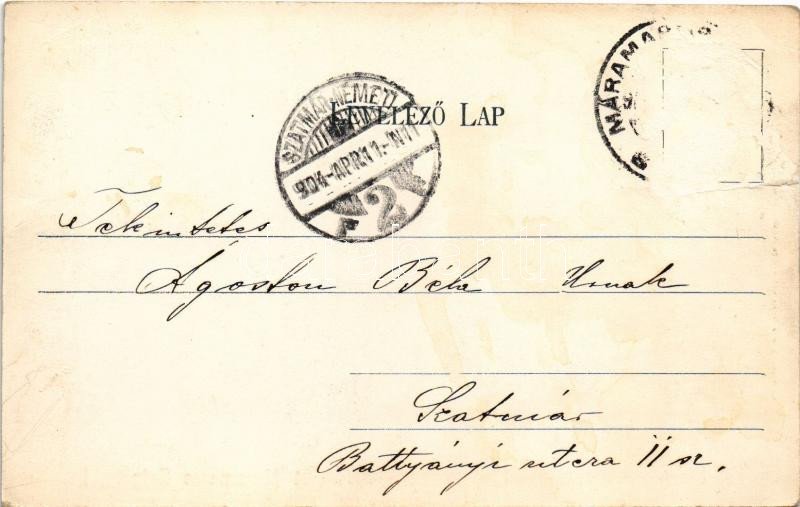 LEVELEZŐ LAP
SZATMÁR-NÉMETI
904-APR11.-N11
2
MÁRAMAROS
Tekintetes
Ágoston Béla Urnak
Szatmár
Battyányi utcza 11 sz.